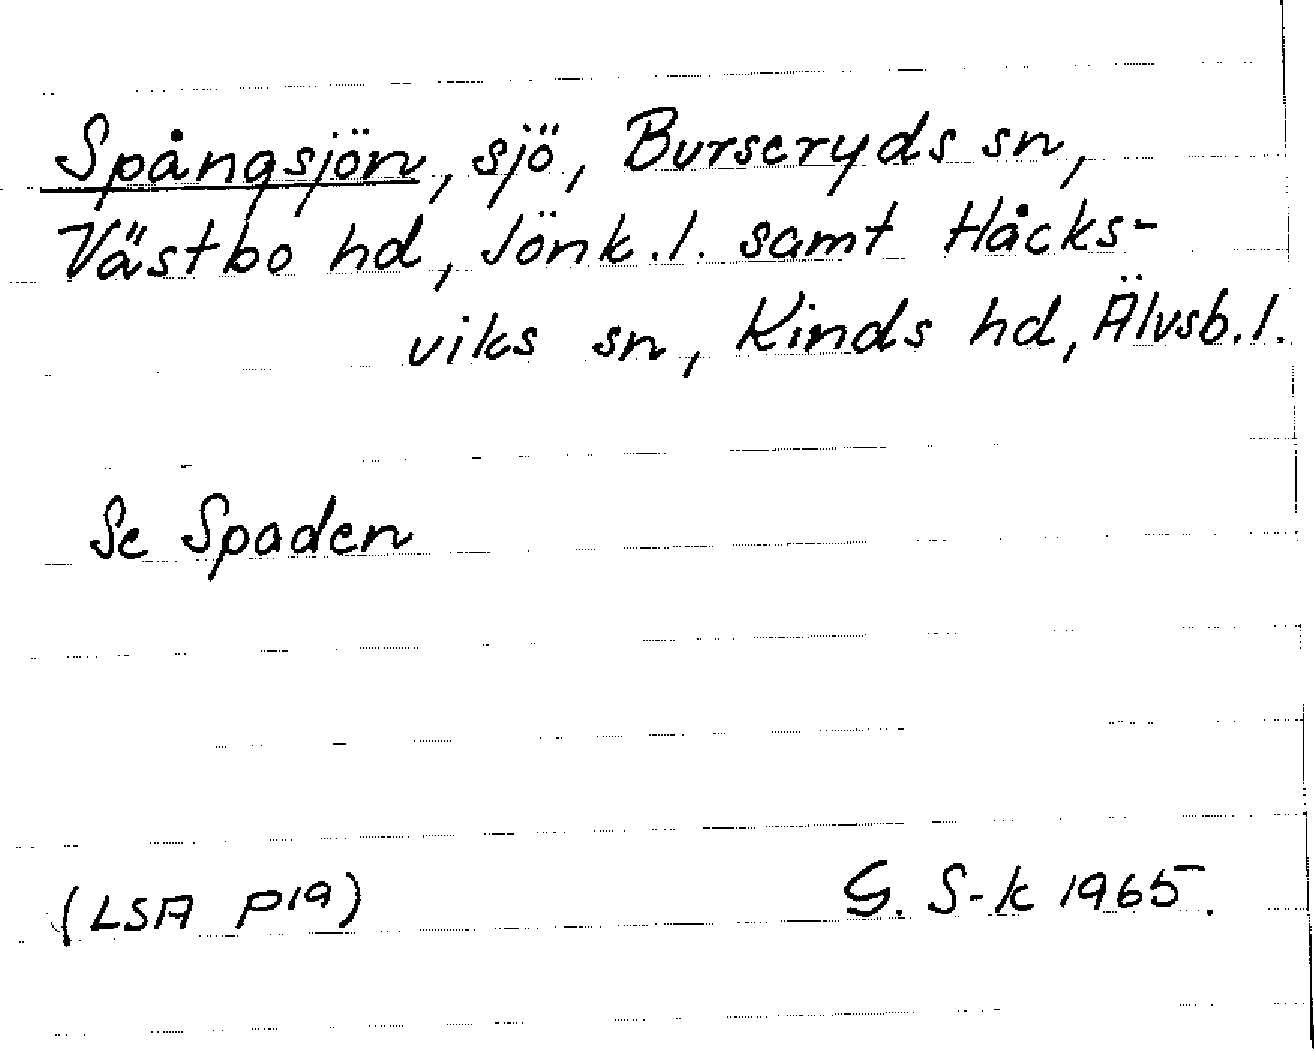 Spångsjön, sjö, Burseryds sn,
Västbo hd, Jönk.l. samt Håcks-
viks sn, Kinds hd, Älvsb.l.
Se Spaden
(LSA P19)
G. S-k 1965.